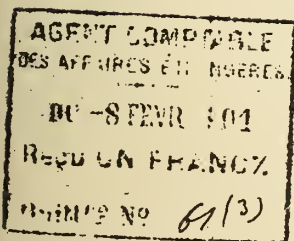 AGENT COMPTABLE
DES AFFAIRES ÉTRANGÈRES
DU -8 FEVR 
Reçu UN FRANC %
Nº 61 (3)